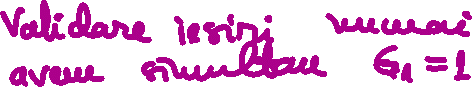 Validare ieșiri numai
avem simultan G₁ = 1